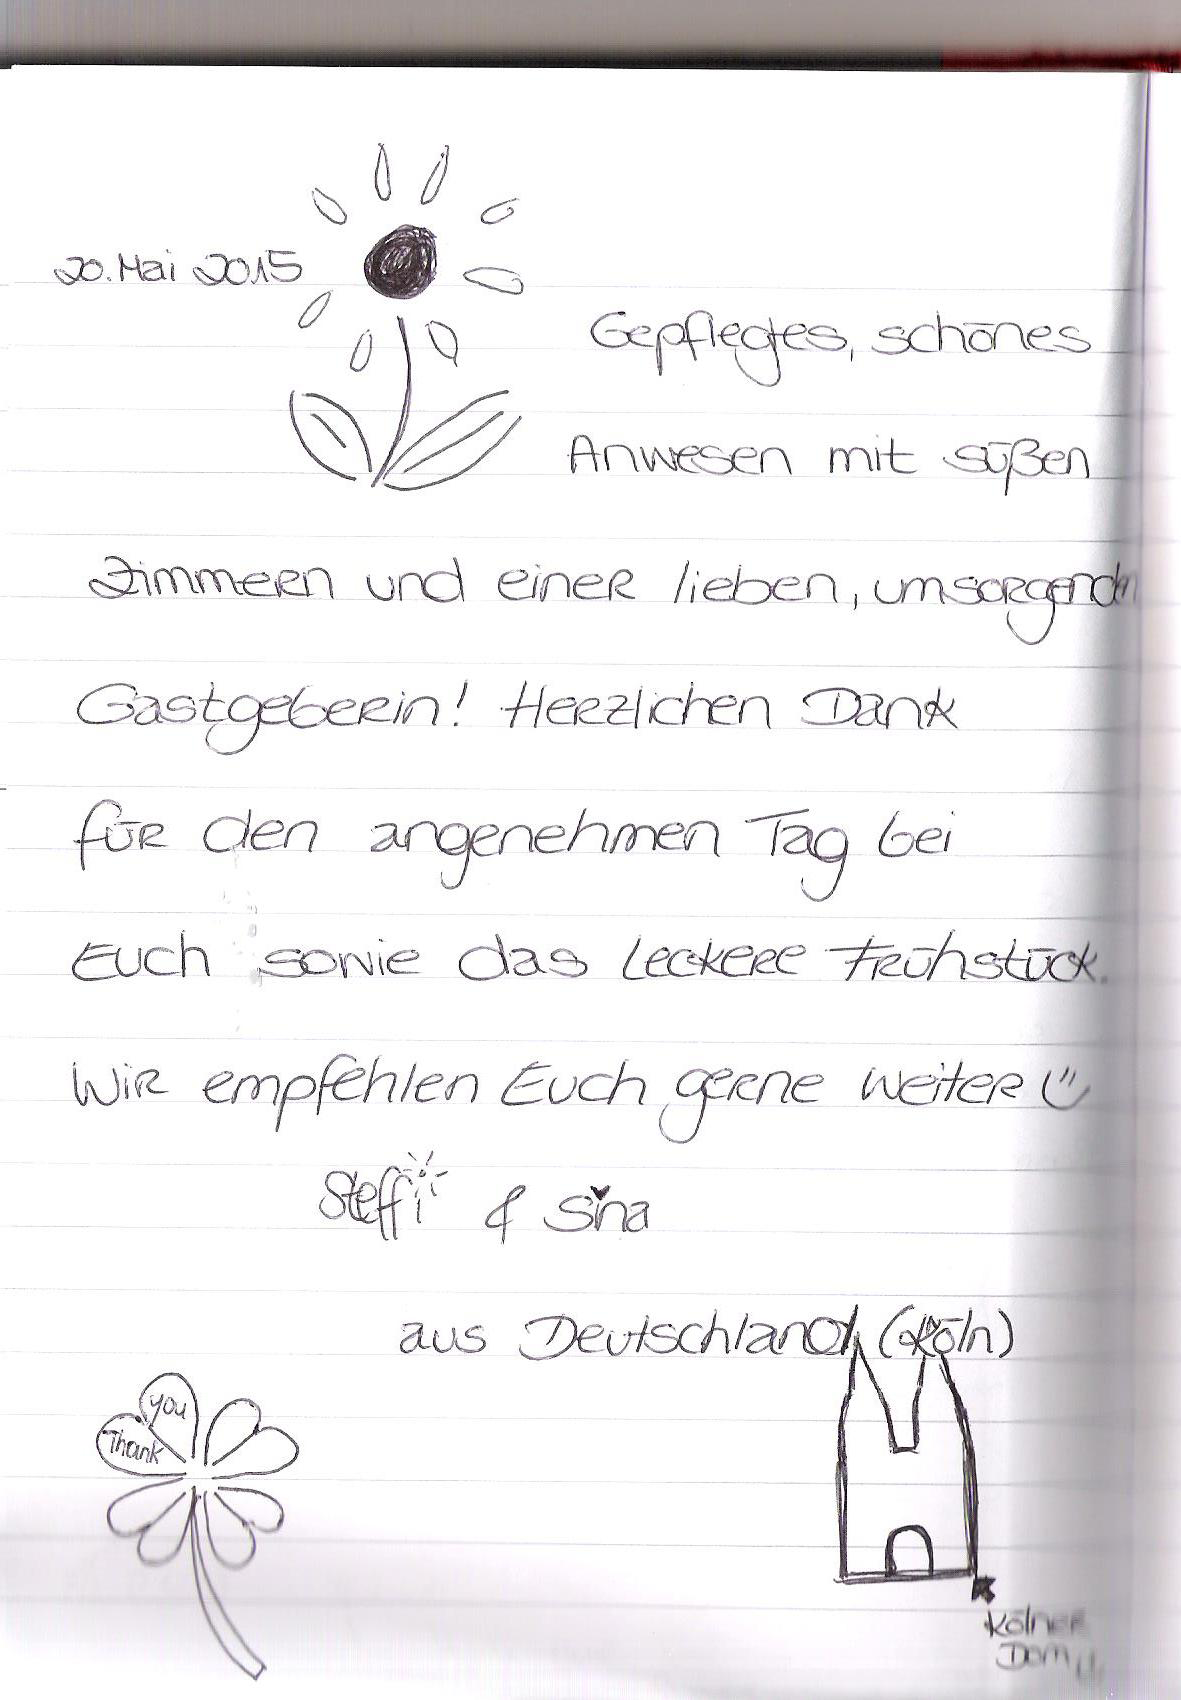 20. Mai 2015
Gepflegtes, schönes
Anwesen mit süßen
Zimmern und einer lieben, umsorgenden
Gastgeberin! Herzlichen Dank
für den angenehmen Tag bei
Euch sowie das leckere Frühstück.
Wir empfehlen Euch gerne weiter
Steffi & Sina
aus Deutschland (Köln)
you
Thank
Kölner
Dom